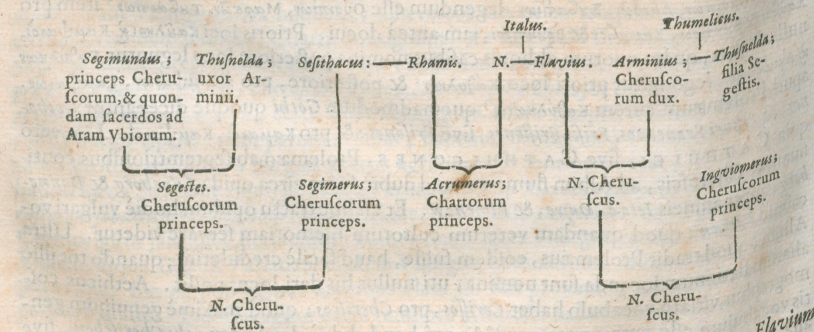 Italus.
Thumelicus.
Segimundus;
princeps Cheru-
ſcorum,& quon-
dam ſacerdos ad
Aram Vbiorum.
Thuſnelda;
uxor Ar-
minii.
Seſithacus:
Rhamis.
N.
Flavius.
Arminius;
Cheruſco-
rum dux.
Thuſnelda;
filia Se-
geſtis.
Segeſtes.
Cheruſcorum
princeps.
Segimerus;
Cheruſcorum
princeps.
Acrumerus;
Chattorum
princeps.
N. Cheru-
ſcus.
Ingviomerus;
Cheruſcorum
princeps.
N. Cheru-
ſcus.
N. Cheru-
ſcus.
Flavium